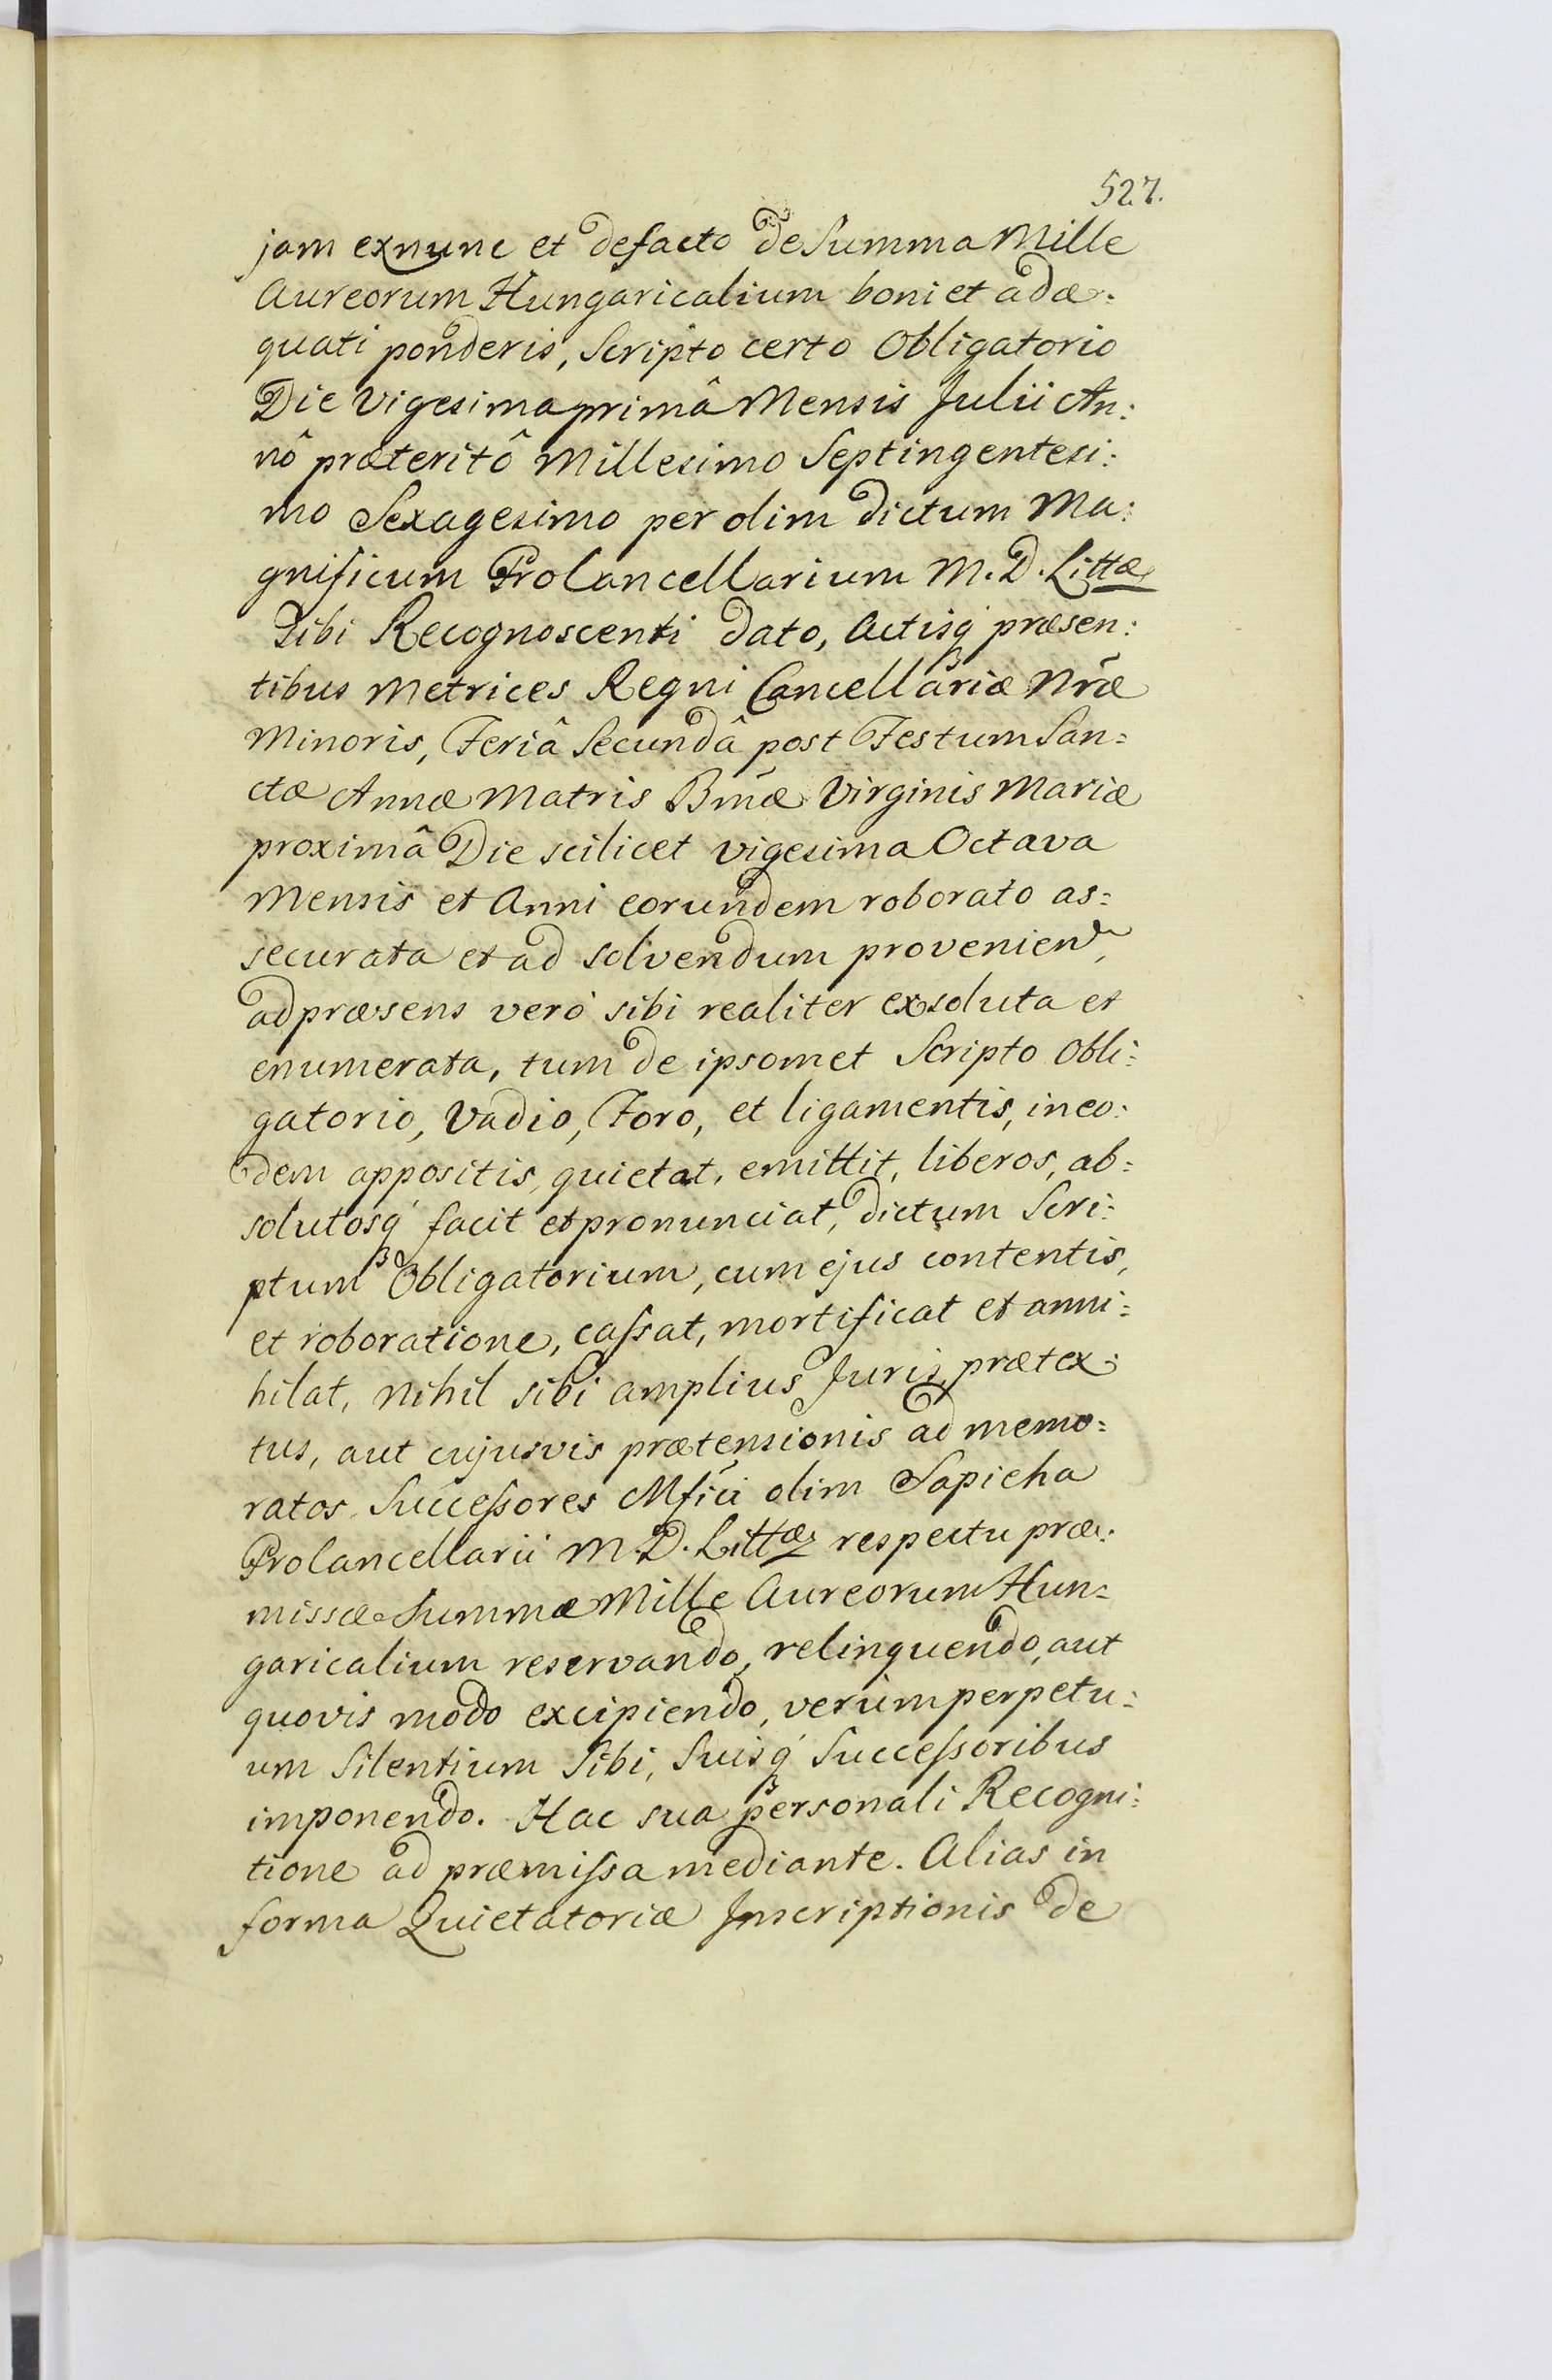 527.
jam exnunc et defacto de Summa Mille
Aureorum Hungaricalium boni et adæ:
quati ponderis, Scripto certo Obligatorio
Die Vigesima primâ Mensis Julii An:
nô præteritô Millesimo Septingentesi:
mo Sexagesimo per olim dictum Ma:
gnificum ProCancellarium M. D. Littæ
Sibi Recognoscenti dato, Actisq́ præsen:
tibus Metrices Regni Cancellariæ Nræ̃
Minoris, Feriâ Secundâ post Festum San:
ctæ Annæ Matris Bm̃æ Virginis Mariæ
proximâ Die scilicet vigesima Octava
Mensis et Anni eorundem roborato as:
securata et ad solvendum provenien,
ad præsens verò sibi realiter exsoluta et
enumerata, tum de ipsomet Scripto Obli:
gatorio, Vadio, Foro, et ligamentis, in eo:
dem appositis, quietat, emittit, liberos, ab:
solutosq́ facit et pronunciat, dictum Scri:
ptum Obligatorium, cum ejus contentis,
et roboratione, caſsat, mortificat et anni:
hilat, Nihil sibi amplius Juris, prætex:
tus, aut cujusvis prætensionis ad memo:
ratos Succeſsores Mfici olim Sapieha
ProCancellarii M. D. Littæ respectu præ:
missæ Summæ Mille Aureorum Hun:
garicalium reservando, relinquendo, aut
quovis modo excipiendo, verùm perpetu:
um Silentium Sibi, Suisq́ Succeſsoribus
imponendo. Hac sua personali Recogni:
tione ad præmiſsa mediante. Alias in
forma Quietatoriæ Inscriptionis de